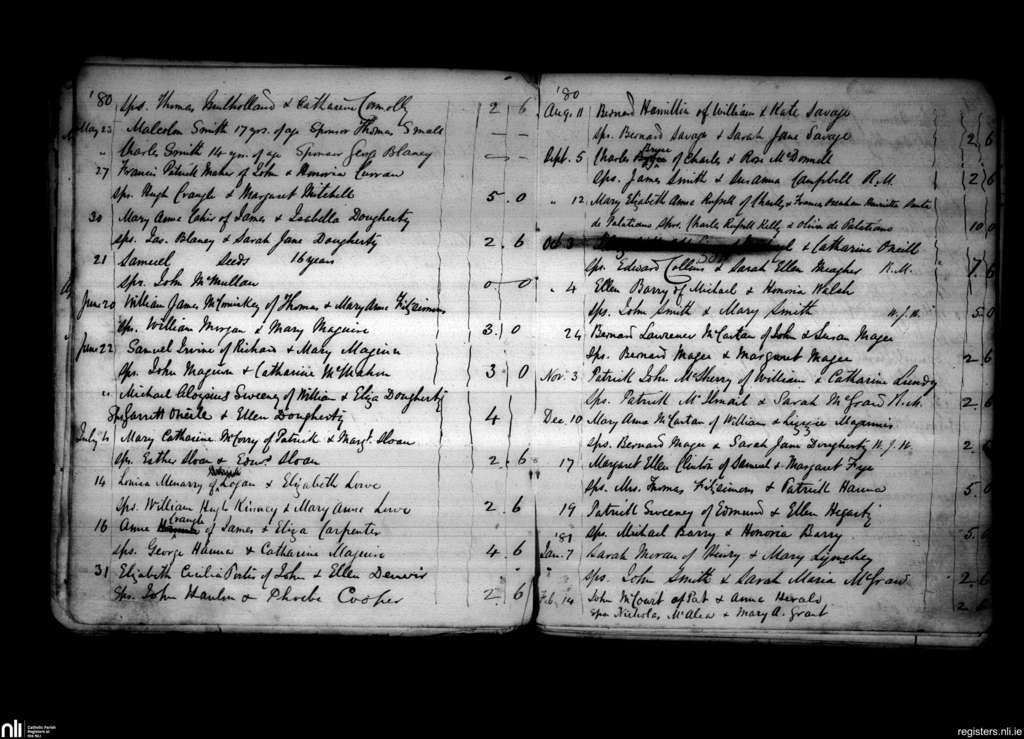 '80 sps. Thomas Mulholland & Catharine Connolly 2 6
May 23 Malcolm Smith 17 yrs. of age Sponsor Thomas Small — —
" Charles Smith 14 yrs. of age Sponsor George Blaney — —
27 Francis Patrick Maher of John & Honoria Curran
sps. Hugh Crangle & Margaret Mitchell 5. 0
30 Mary Anne Cahir of James & Isabella Dougherty
sps. Jas. Blaney & Sarah Jane Dougherty 2. 6
21 Samuel Seeds 16 years
Sps. John McMullan 0 — 0
June 20 William James McComiskey of Thomas & Mary Anne Fitzsimons
sps. William Morgan & Mary Maguire 3. 0
June 22 Samuel Irvine of Richard & Mary Maginn
sps. John Maginn & Catharine McMahon 3 0
" Michael Aloysius Sweeney of William & Eliza Dougherty
Sps. Garrett Oneile & Ellen Dougherty 4
July 4 Mary Catharine McCorry of Patrick & Margt. Sloan
sps. Esther Sloan & Edwd. Sloan 2. 6
14 Louisa Menarry of Logan & Elizabeth Lowe
Sps. William Hugh Kinney & Mary Anne Lowe 2. 6
Crangle
16 Anne of James & Eliza Carpenter
sps. George Hanna & Catharine Magenis 4. 6
31 Elizabeth Cecilia Porter of John & Ellen Denvir
Sps. John Hanlon & Phoebe Cooper 2. 6
'80
Aug. 11 Bernard Hamill of William & Kate Savage
sps. Bernard Savage & Sarah Jane Savage 2 6
Sept. 5 Charles of Charles & Rose McDonnell
Sps. James Smith & Susanna Campbell R.M. 2 6
" 12 Mary Elizabeth Anne Russell of Charles & Frances
de Palatiano Sprs. Charles Russell Kelly & Olivia de Palatiano 10 0
Oct. 3 & Catharine Oneill
Sps. Edward Collins & Sarah Ellen Meagher R.M. 7. 6
" 4 Ellen Barry of Michael & Honoria Walsh
sps. John Smith & Mary Smith 5. 0
24 Bernard Lawrence McCartan of John & Susan Magee
Sps. Bernard Magee & Margaret Magee 2 6
Nov. 3 Patrick John McSherry of William & Catharine Lundy
Sps. Patrick McIlmail & Sarah McGrand R.M. 2. 6
Dec. 10 Mary Anne McCartan of William & Lizzie Magennis
sps. Bernard Magee & Sarah Jane Dougherty 2.
17 Margaret Ellen Clinton of Samuel & Margaret Frye
sps. Mrs. Thomas Fitzsimons & Patrick Hanna 5. 0
19 Patrick Sweeney of Edmund & Ellen Hegarty
'81 sps. Michael Barry & Honoria Barry 5. 0
Jan. 7 Sarah Moran of Henry & Mary Lynchey
" sps. John Smith & Sarah Maria McGrand 2 6
Feb. 14 John McCourt of Pat & Anne Herald
sps. Nicholas McAlea & Mary A. Grant 2 6
nli Catholic Parish
Registers at
the NLI
registers.nli.ie